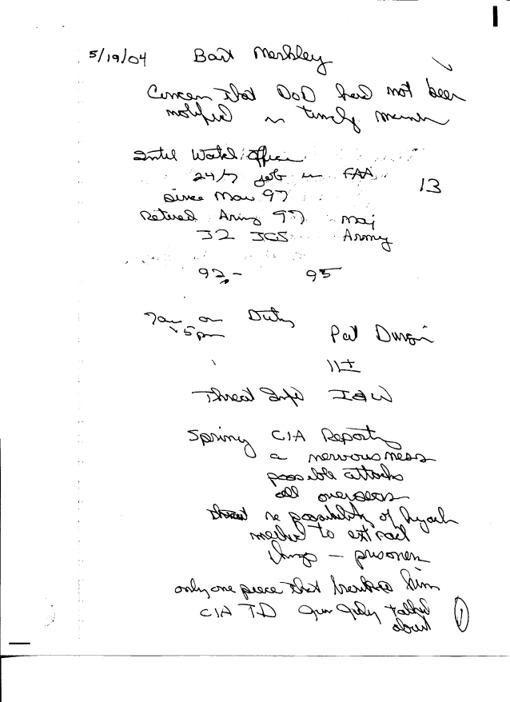 5/19/04 Bart Merkley
Concern that DoD had not been
notified in timely manner
Intel Watch Officer
24/7 job in FAA
13
since Mar 97
Retired Army 97 Maj
J2 JCS Army
92- 95
7am on Duty
5pm
Pat Durgin
11I
Threat Info I&W
Spring CIA Reporting
a nervousness
possible attacks
all overseas
re possibility of hijack
method to extract
things – prisoners
only one piece that him
CIA TD talked
about 1